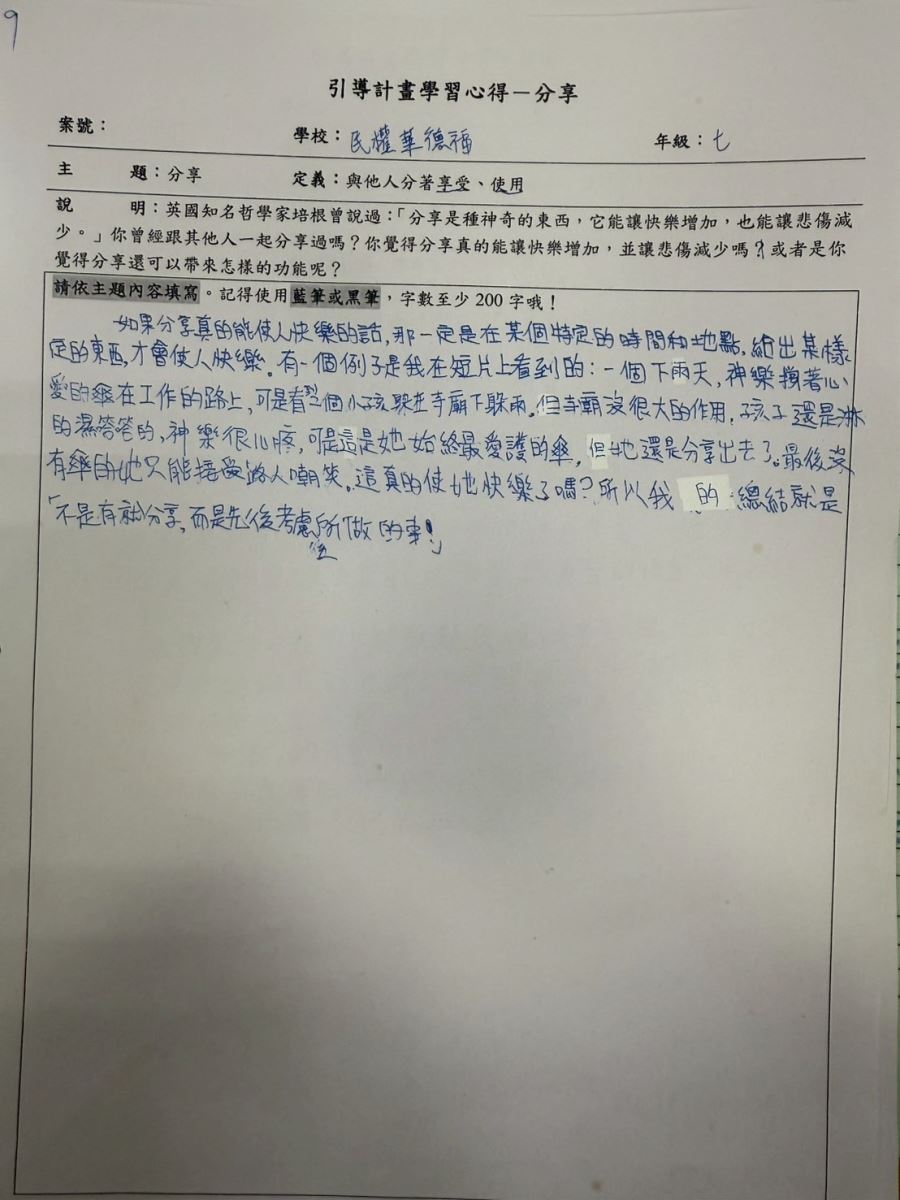 9
引導計畫學習心得－分享
案號： 學校：民權華德福 年級：七
主 題：分享 定義：與他人分著享受、使用
說 明：英國知名哲學家培根曾說過：「分享是種神奇的東西，它能讓快樂增加，也能讓悲傷減
少。」你曾經跟其他人一起分享過嗎？你覺得分享真的能讓快樂增加，並讓悲傷減少嗎？或者是你
覺得分享還可以帶來怎樣的功能呢？
請依主題內容填寫。記得使用藍筆或黑筆，字數至少 200 字哦！
如果分享真的能使人快樂的話，那一定是在某個特定的時間和地點，給出某樣
定的東西，才會使人快樂。有一個例子是我在短片上看到的：一個下雨天，神樂撐著心
愛的傘在工作的路上，可是看到三個小孩躲在寺廟下躲雨。但寺廟沒很大的作用，孩子還是淋
的濕答答的，神樂很心疼，可是這是她始終最愛護的傘，但她還是分享出去了。最後沒
有傘的她只能接受路人嘲笑。這真的使她快樂了嗎？所以我的總結就是
「不是有就分享，而是先後考慮所做的事！」